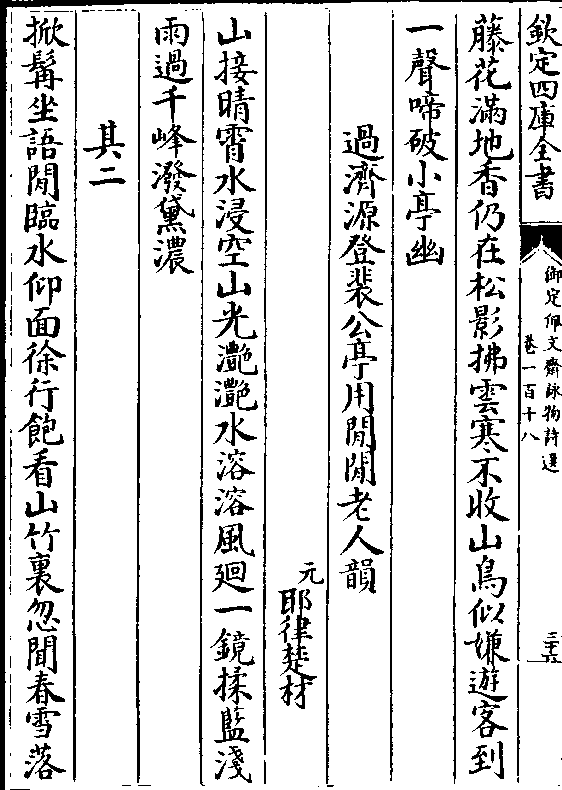 欽定四庫全書
御定佩文齋詠物詩選
卷一百十八
三十六
藤花滿地香仍在松影拂雲寒不收山鳥似嫌遊客到
一聲啼破小亭幽
過濟源登裴公亭用閒閒老人韻
元
耶律楚材
山接晴霄水浸空山光灧灧水溶溶風廻一鏡揉藍淺
雨過千峰潑黛濃
其二
掀髯坐語閒臨水仰面徐行飽看山竹裏忽聞春雪落